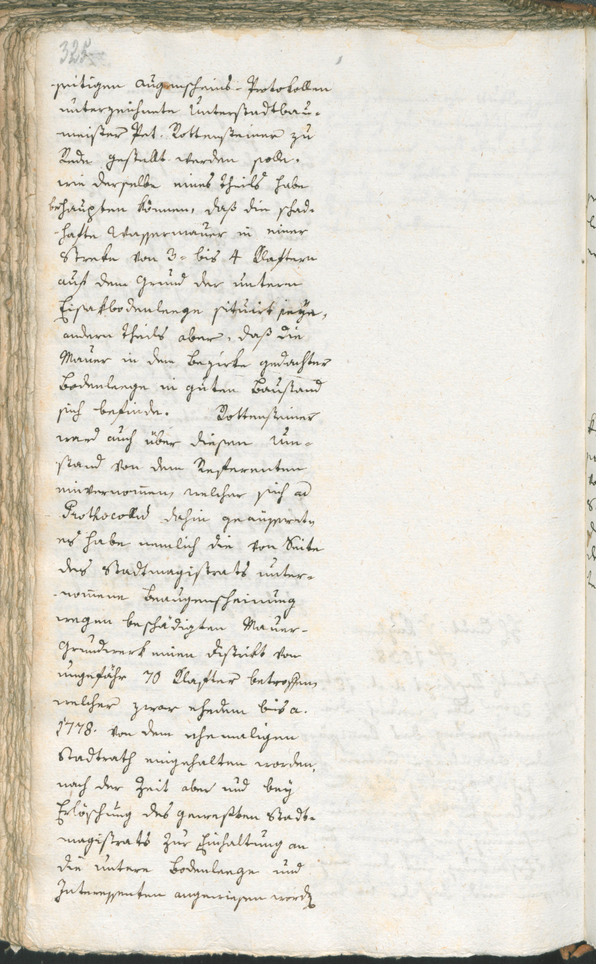 325
seitigen Augenscheins-Protokollen
unterzeichnete Unterstadtbau-
meister Pet. Rottensteiner zu
Rede gestellt werden solle.
wie derselbe eines Theils habe
behaupten können, daß die schad-
hafte Wassermauer in einer
Streke von 3- bis 4 Klaftern
auf dem Grund der untern
Eisakbodenleege situirt seye,
andern Theils aber, daß die
Mauer in dem Bezirke gedachter
Bodenleege in guten Baustand
sich befinde. Rottensteiner
ward auch über diesen Um-
stand von dem Referenten
einvernommen, welcher sich ad
Prothocollum dahin geäussert,
es habe nemlich die von Seite
des Stadtmagistrats unter-
nommene Beaugenscheinung
wegen beschädigten Mauer-
Grundwerk einen Distrikt von
ungefähr 70 Klafter betroffen,
welcher zwar ehedem bis a.
1778. von dem ehemaligen
Stadtrath eingehalten worden,
nach der Zeit aber und bey
Erlöschung des gewesten Stadt-
magistrats zur Einhaltung an
die untere Bodenleege und
Interessenten angewiesen worden